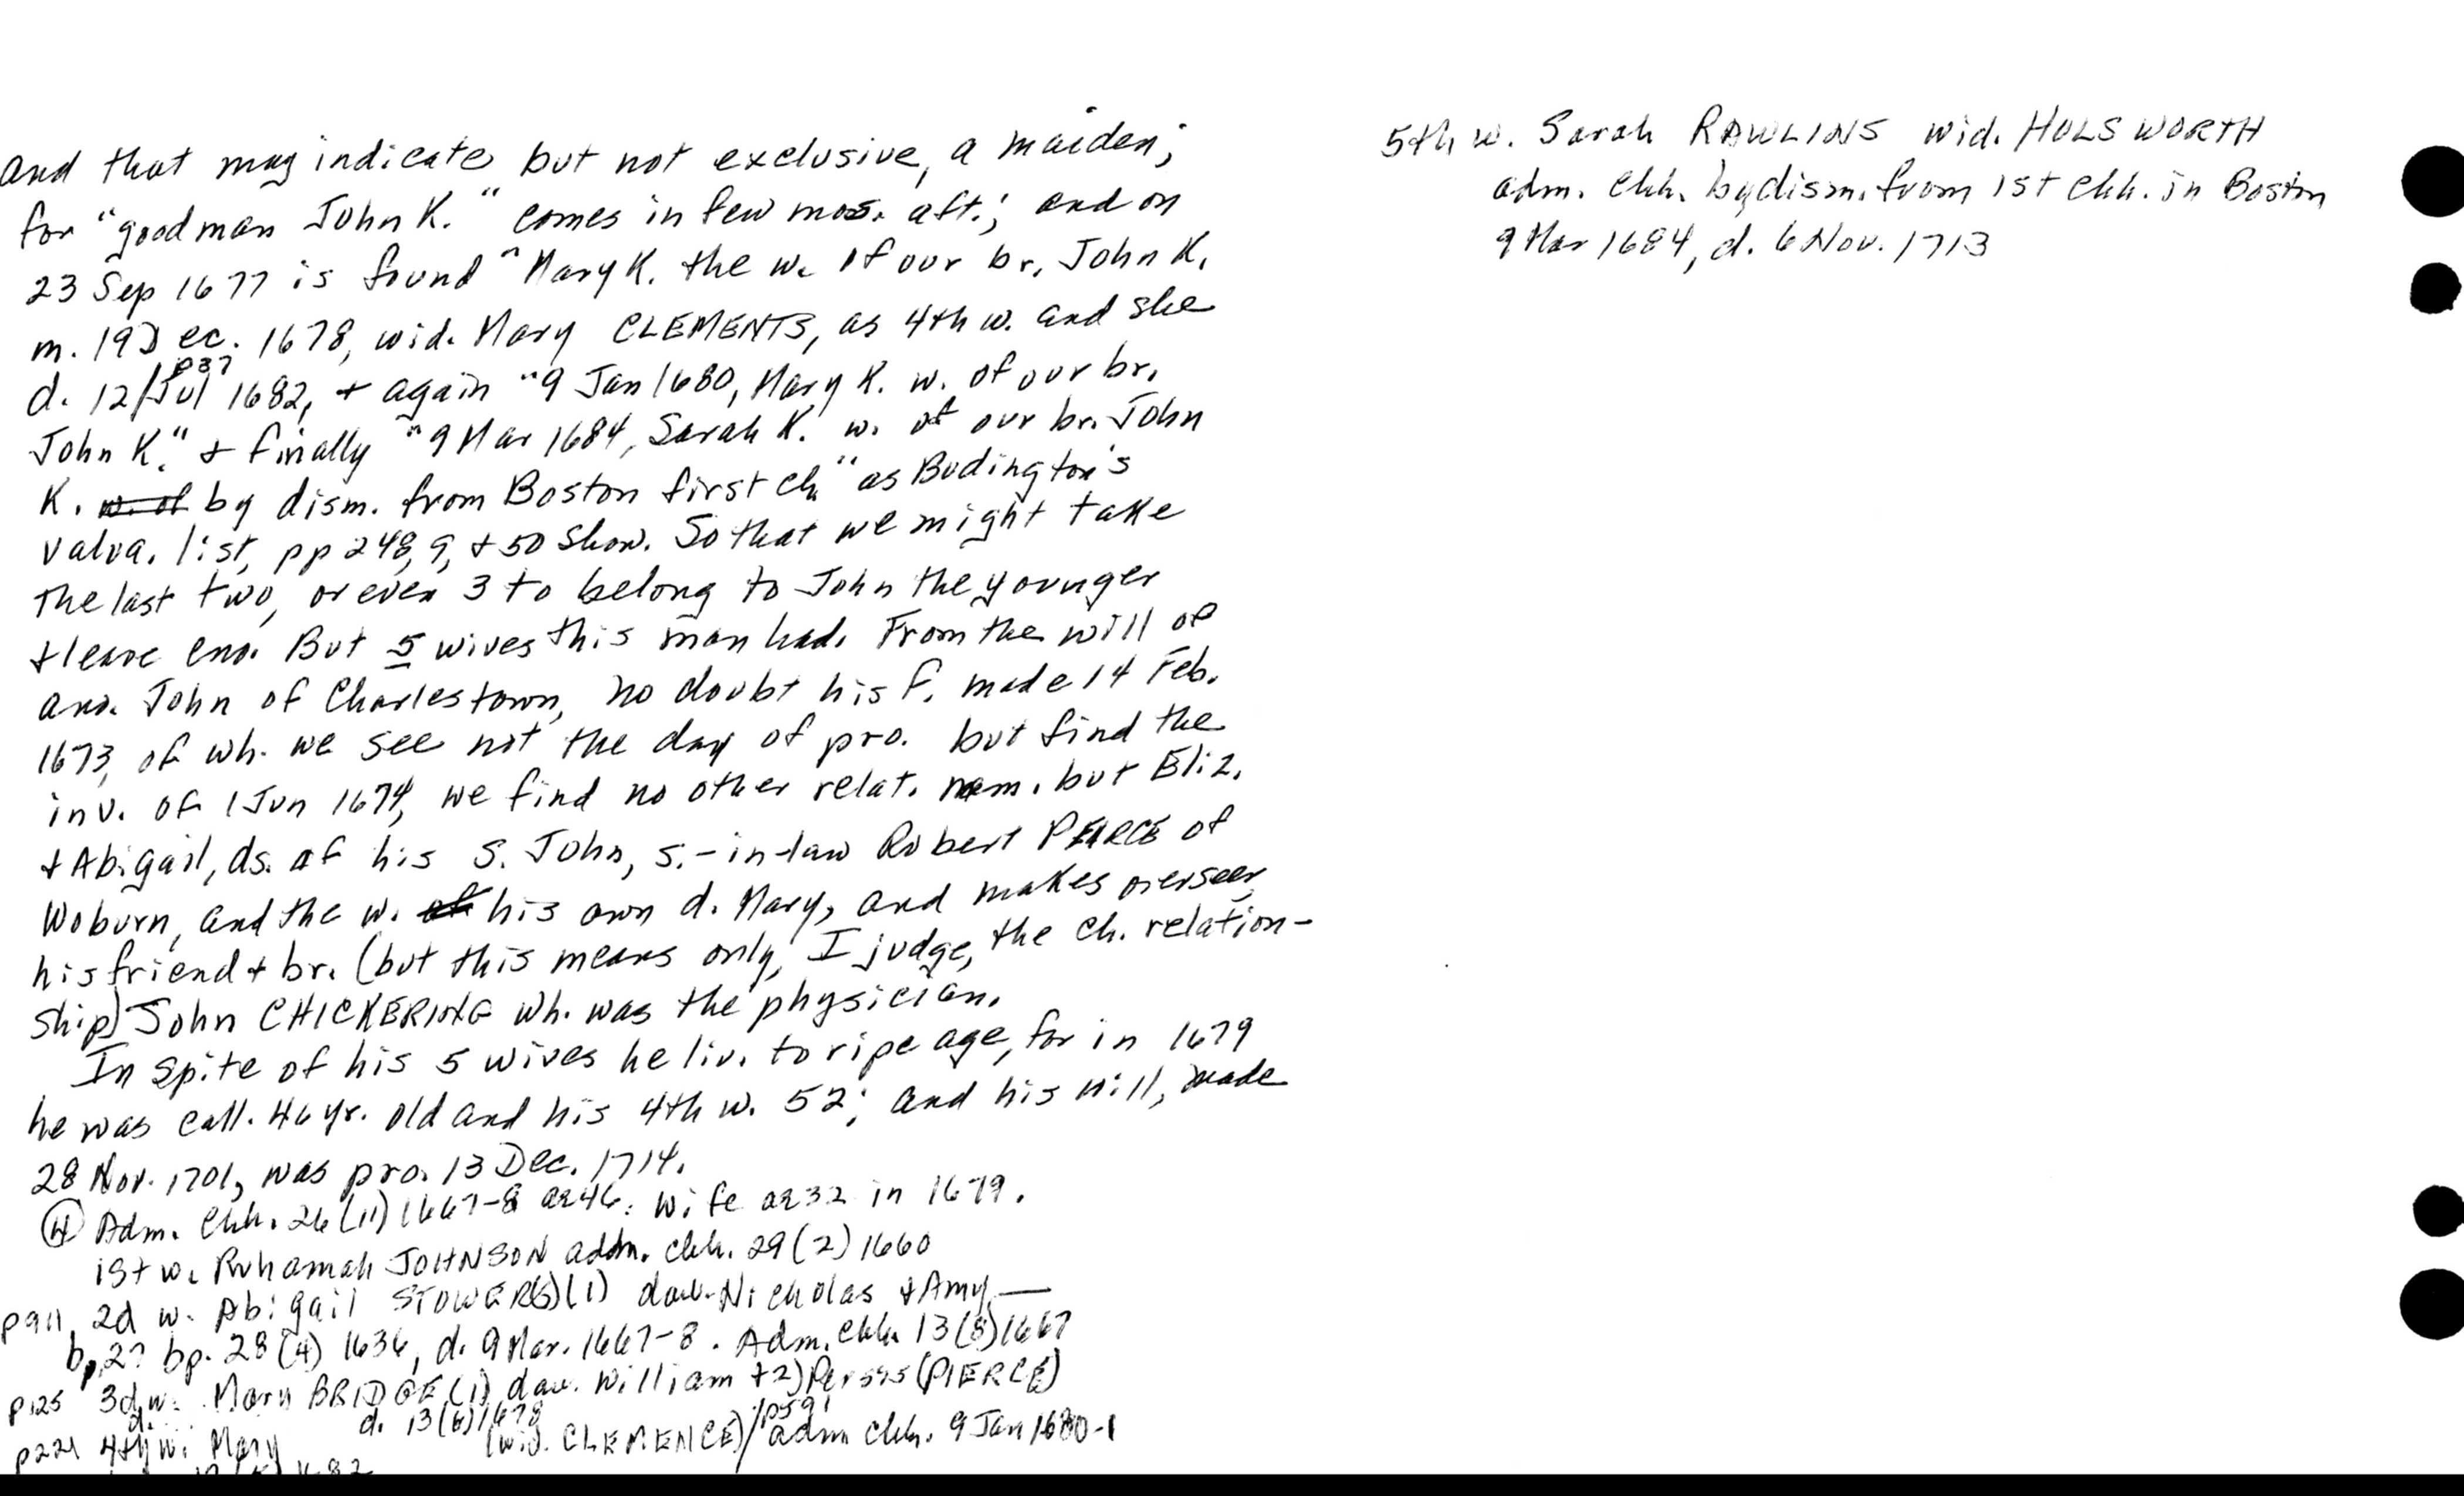 and that may indicate but not exclusive, a maiden;
for "goodman John K." comes in few mos. aft.; and on
23 Sep 1677 is found "Mary K. the w. of our br. John K.
m. 19 Dec. 1678, wid. Mary CLEMENTS, as 4th w. and she
p37
d. 12/Jul 1682, + again "9 Jan 1680, Mary K. w. of our br.
John K." + finally "9 Mar 1684, Sarah K. w. of our br. John
K. w. of by dism. from Boston first ch." as Budington's
valua. list, pp 248, 9, + 50 show. So that we might take
the last two, or even 3 to belong to John the younger
+ leave eno. But 5 wives this man had. From the will of
ano. John of Charlestown, no doubt his f. made 14 Feb.
1673, of wh. we see not the day of pro. but find the
inv. of 1 Jun 1674, we find no other relat. nam. but Eliz.
+ Abigail, ds. of his s. John, s.-in-law Robert PEARCE of
Woburn, and the w. of his own d. Mary, and makes overseer
his friend + br. (but this means only, I judge, the ch. relation-
ship) John CHICKERING wh. was the physician.
In spite of his 5 wives he liv. to ripe age, for in 1679
he was call. 46 yr. old and his 4th w. 52; and his will, made
28 Nov. 1701, was pro. 13 Dec. 1714.
(4) Adm. chh. 26 (11) 1667-8 ae46: wife ae32 in 1679.
1st w. Ruhamah JOHNSON adm. chh. 29 (2) 1660
p911 2d w. Abigail STOWER(S)(1) dau. Nicholas + Amy —
b. 2? bp. 28 (4) 1636, d. 9 Mar. 1667-8. Adm. chh. 13 (8) 1667
p125 3d w. Mary BRIDGE (1) dau. William + 2) Persis (PIERCE)
d. 13 (6) 1678
p221 4th w. Mary (wid. CLEMENCE)/p591 adm chh. 9 Jan 1680-1
1682
5th w. Sarah RAWLINS wid. HOLSWORTH
adm. chh. by dism. from 1st chh. in Boston
9 Mar 1684, d. 6 Nov. 1713